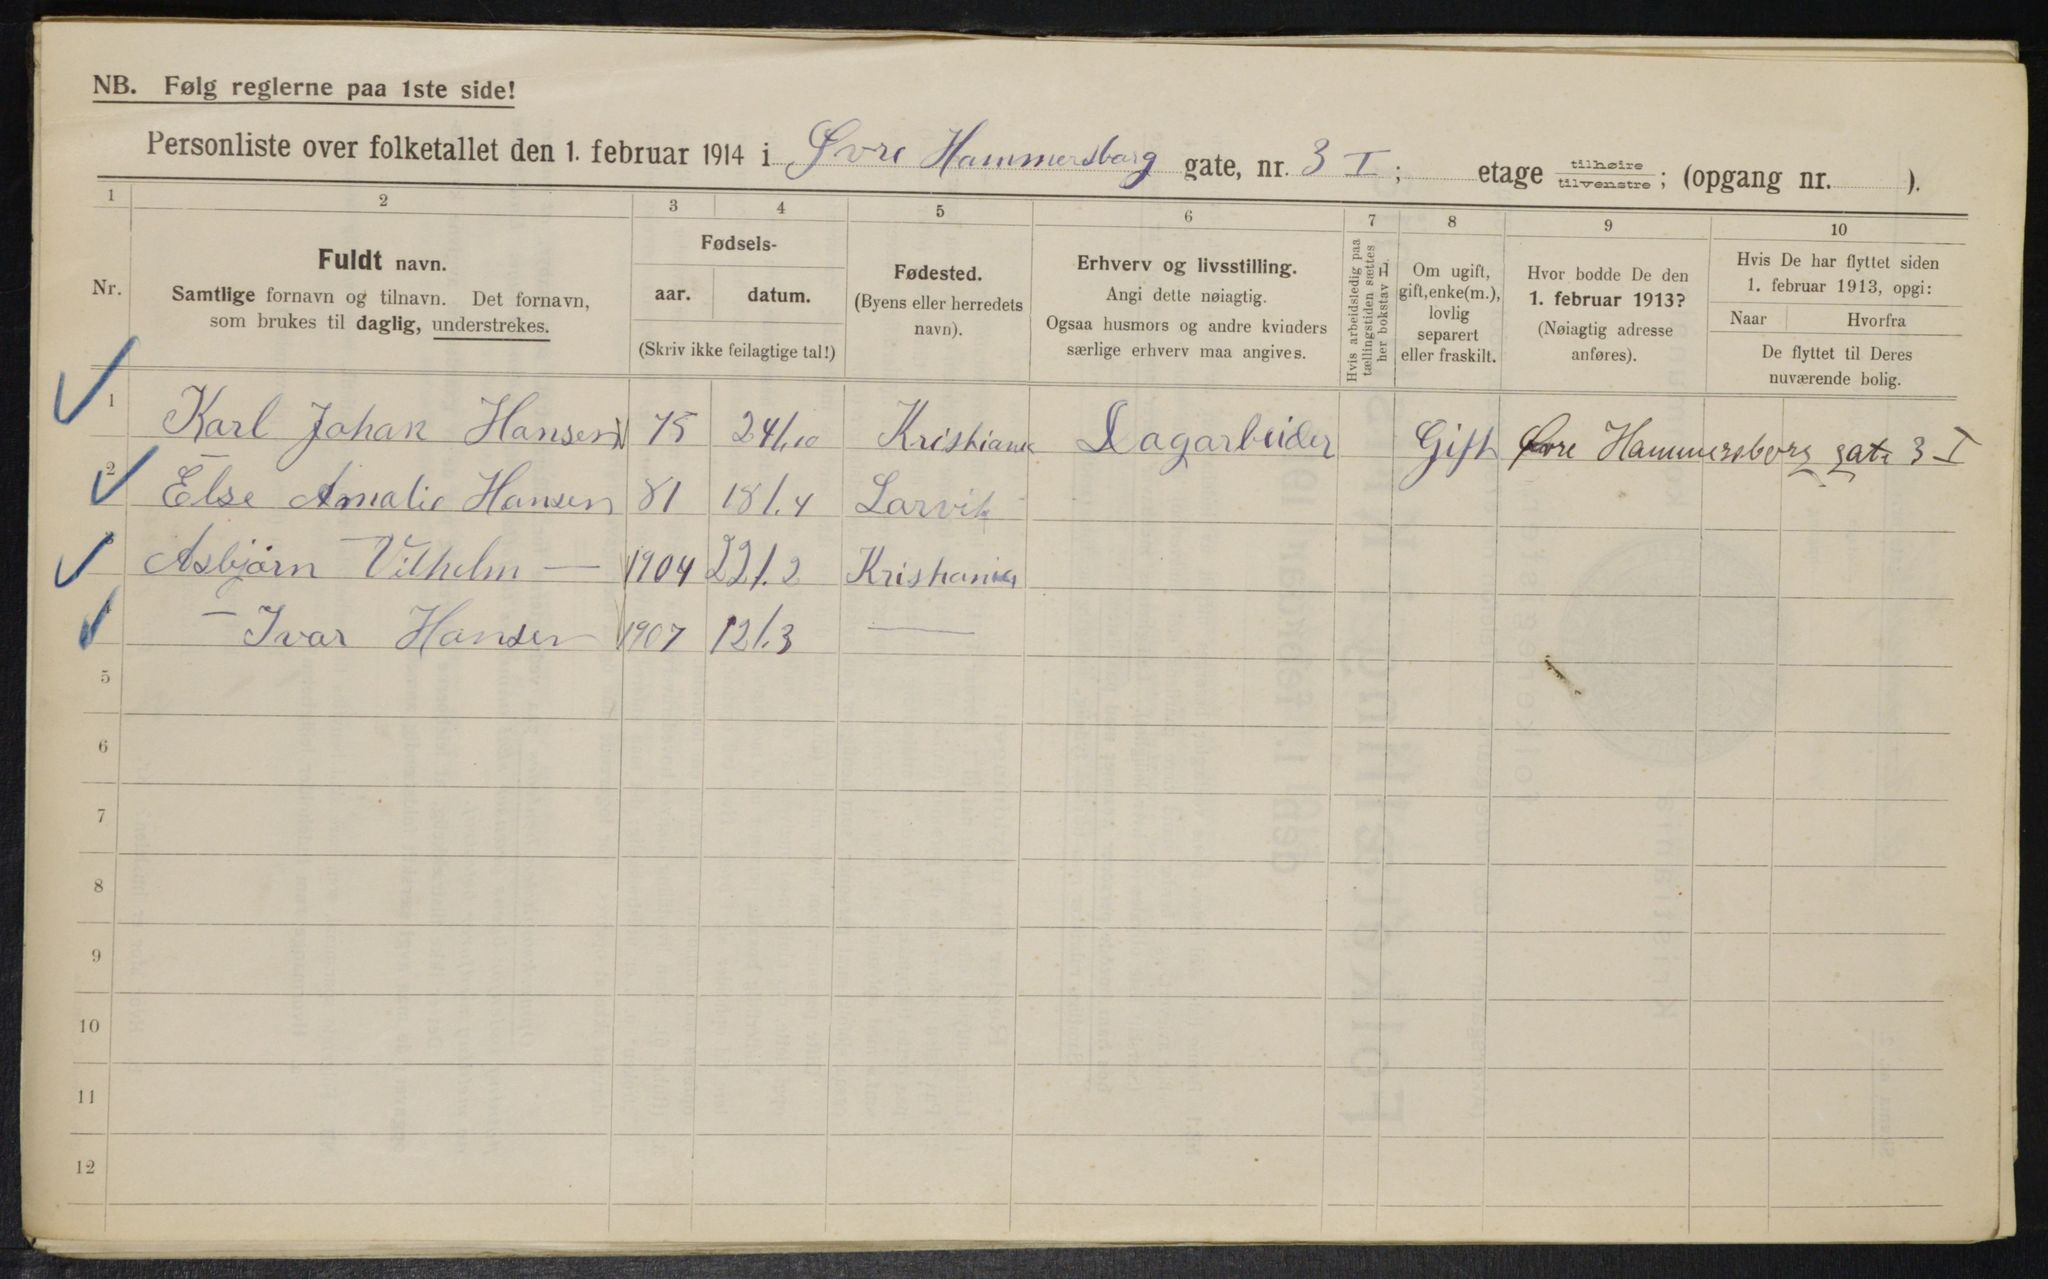 NB. Følg reglerne paa 1ste side!
Personliste over folketallet den 1. februar 1914 i Øvre Hammersborg gate, nr. 3 I; etage tilhøire tilvenstre; (opgang nr. ).
1 2 3 4 5 6 7 8 9 10
Nr.
Fuldt navn.
Samtlige fornavn og tilnavn. Det fornavn,
som brukes til daglig, understrekes.
Fødsels-
aar. datum.
(Skriv ikke feilagtige tal!)
Fødested.
(Byens eller herredets
navn).
Erhverv og livsstilling.
Angi dette nøiagtig.
Ogsaa husmors og andre kvinders
særlige erhverv maa angives.
Hvis arbeidsledig paa
tællingstiden sættes
her bokstav H.
Om ugift,
gift, enke(m.),
lovlig
separert
eller fraskilt.
Hvor bodde De den
1. februar 1913?
(Nøiagtig adresse
anføres).
Hvis De har flyttet siden
1. februar 1913, opgi:
Naar Hvorfra
De flyttet til Deres
nuværende bolig.
1 Karl Johan Hansen 75 24/10 Kristiania Dagarbeider Gift Øvre Hammersborg gate 3 I
2 Else Amalie Hansen 81 18/.4 Larvik
3 Asbjørn Vilhelm — 1904 22/.2 Kristiania
4 — Ivar Hansen 1907 12/.3 —
5
6
7
8
9
10
11
12